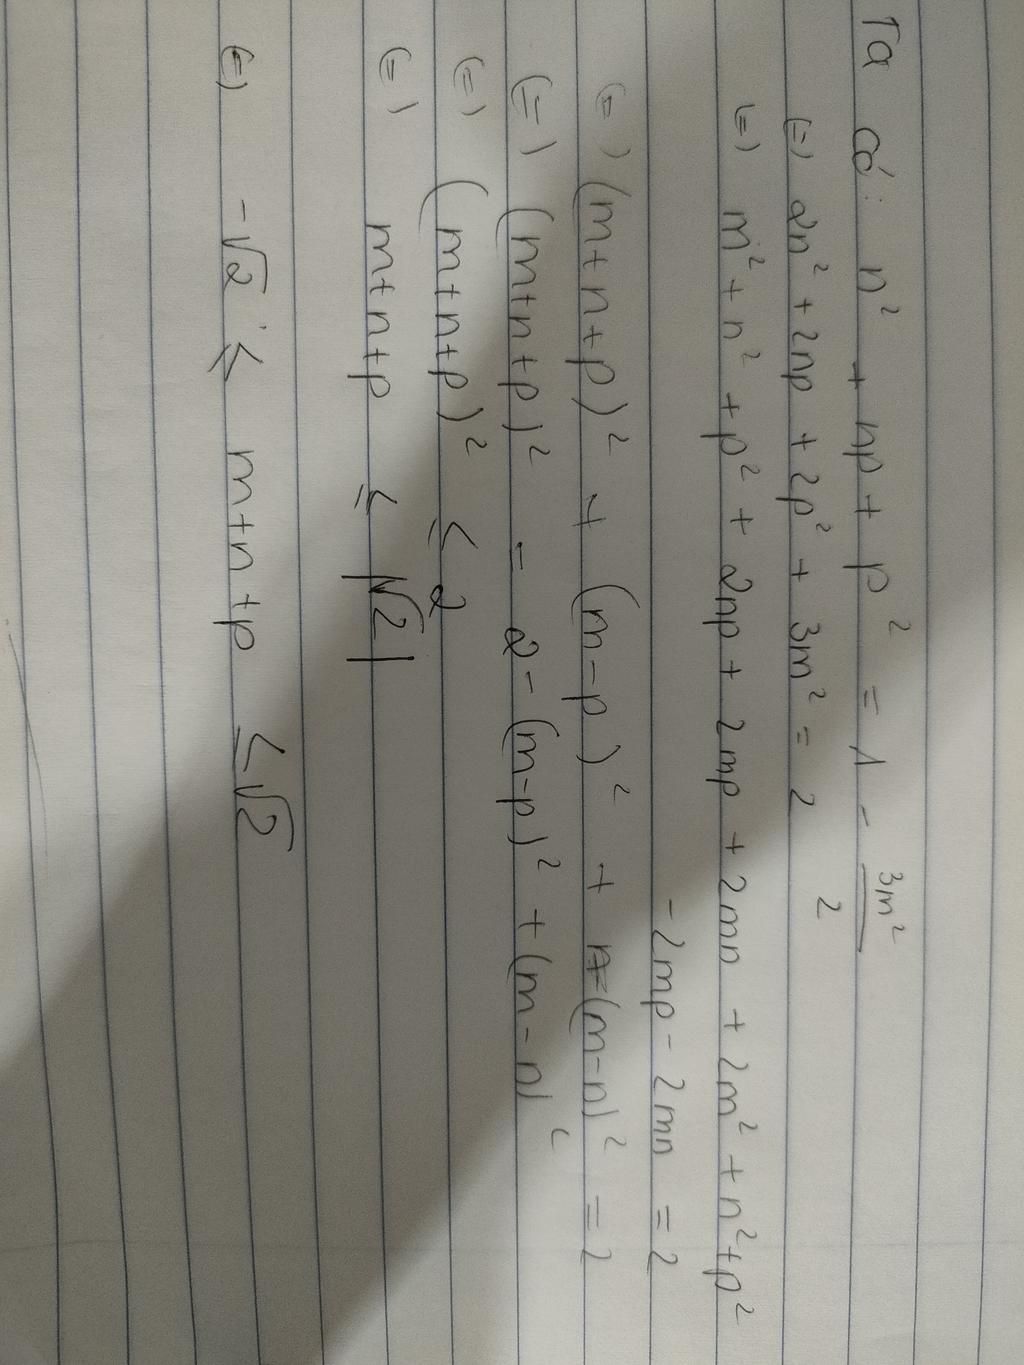 Ta có: n² + np + p² = 1 - 3m²/2
(=) 2n² + 2np + 2p² + 3m² = 2
(=) m² + n² + p² + 2np + 2mp + 2mn + 2m² + n² + p²
- 2mp - 2mn = 2
(=) (m+n+p)² + (m-p)² + (m-n)² = 2
(=) (m+n+p)² = 2 - (m-p)² + (m-n)²
(=) (m+n+p)² ≤ 2
(=) m+n+p ≤ |√2|
(=) -√2 ≤ m+n+p ≤ √2